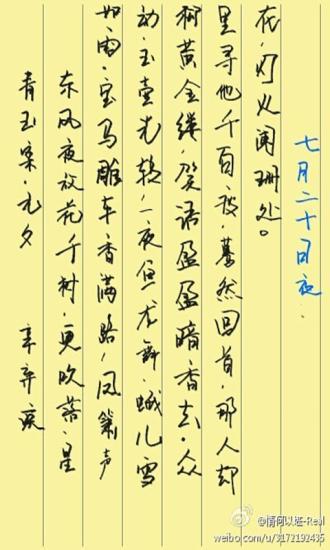 青玉案·元夕 辛弃疾
东风夜放花千树,更吹落·星
如雨·宝马雕车·香满路,凤箫声
动·玉壶光转,一夜鱼龙舞·蛾儿雪
柳黄金缕,笑语盈盈暗香去·众
里寻他千百度,蓦然回首,那人却
在,灯火阑珊处。
七月二十日夜.
@情何以堪-Real
weibo.com/u/3172192435